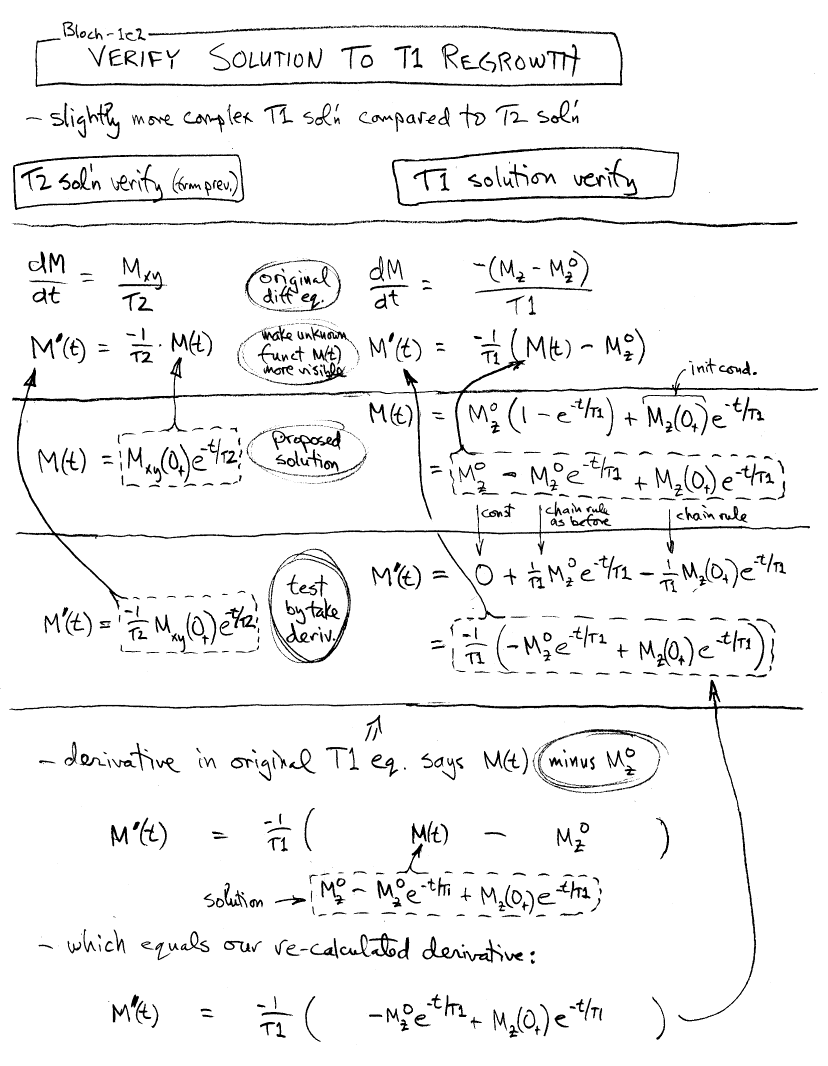 Bloch-1e2
VERIFY SOLUTION TO T1 REGROWTH
- slightly more complex T1 sol'n compared to T2 sol'n
T2 sol'n verify (from prev.)
T1 solution verify
dM/dt = M_xy/T2
original diff eq.
dM/dt = -(M_z - M_z^0)/T1
M'(t) = -1/T2 · M(t)
make unknown
funct M(t)
more visible
M'(t) = -1/T1 (M(t) - M_z^0)
init cond.
M(t) = M_z^0 (1 - e^-t/T1) + M_z(0+) e^-t/T1
M(t) = M_xy(0+) e^-t/T2
proposed
solution
= M_z^0 - M_z^0 e^-t/T1 + M_z(0+) e^-t/T1
const
chain rule
as before
chain rule
M'(t) = 0 + 1/T1 M_z^0 e^-t/T1 - 1/T1 M_z(0+) e^-t/T1
M'(t) = -1/T2 M_xy(0+) e^-t/T2
test
by take
deriv.
= -1/T1 (-M_z^0 e^-t/T1 + M_z(0+) e^-t/T1)
⇑
- derivative in original T1 eq. says M(t) minus M_z^0
M'(t) = -1/T1 ( M(t) - M_z^0 )
solution → M_z^0 - M_z^0 e^-t/T1 + M_z(0+) e^-t/T1
- which equals our re-calculated derivative:
M'(t) = -1/T1 ( -M_z^0 e^-t/T1 + M_z(0+) e^-t/T1 )